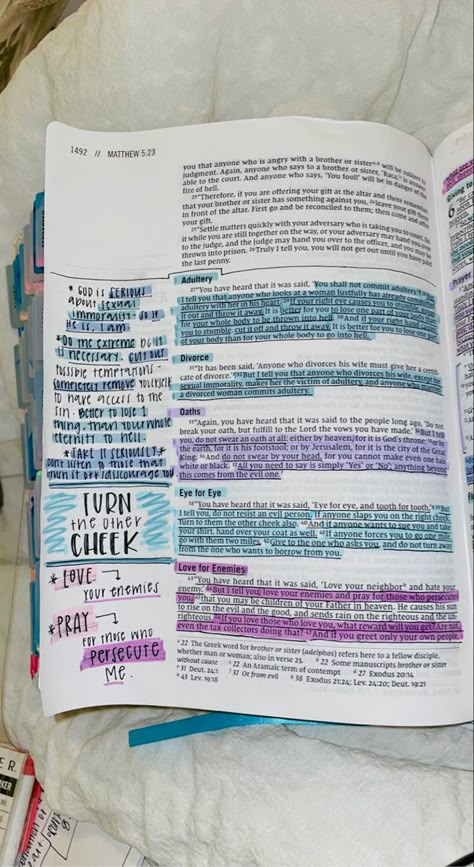 1492 // MATTHEW 5:23
you that anyone who is angry with a brother or sister will be subject to
judgment. Again, anyone who says to a brother or sister, 'Raca,' is answer-
able to the court. And anyone who says, 'You fool!' will be in danger of the
fire of hell.
23"Therefore, if you are offering your gift at the altar and there remember
that your brother or sister has something against you, 24leave your gift there
in front of the altar. First go and be reconciled to them; then come and offer
your gift.
25"Settle matters quickly with your adversary who is taking you to court. Do
it while you are still together on the way, or your adversary may hand you
over to the judge, and the judge may hand you over to the officer, and you may be
thrown into prison. 26Truly I tell you, you will not get out until you have paid
the last penny.
Adultery
27"You have heard that it was said, 'You shall not commit adultery.' 28But
I tell you that anyone who looks at a woman lustfully has already committed
adultery with her in his heart. 29If your right eye causes you to stumble, gouge
it out and throw it away. It is better for you to lose one part of your body than
for your whole body to be thrown into hell. 30And if your right hand causes
you to stumble, cut it off and throw it away. It is better for you to lose one part
of your body than for your whole body to go into hell.
Divorce
31"It has been said, 'Anyone who divorces his wife must give her a certifi-
cate of divorce.' 32But I tell you that anyone who divorces his wife, except for
sexual immorality, makes her the victim of adultery, and anyone who marries
a divorced woman commits adultery.
Oaths
33"Again, you have heard that it was said to the people long ago, 'Do not
break your oath, but fulfill to the Lord the vows you have made.' 34But I tell
you, do not swear an oath at all: either by heaven, for it is God's throne; 35or by
the earth, for it is his footstool; or by Jerusalem, for it is the city of the Great
King. 36And do not swear by your head, for you cannot make even one hair
white or black. 37All you need to say is simply 'Yes' or 'No'; anything beyond
this comes from the evil one.
Eye for Eye
38"You have heard that it was said, 'Eye for eye, and tooth for tooth.' 39But
I tell you, do not resist an evil person. If anyone slaps you on the right cheek,
turn to them the other cheek also. 40And if anyone wants to sue you and take
your shirt, hand over your coat as well. 41If anyone forces you to go one mile,
go with them two miles. 42Give to the one who asks you, and do not turn away
from the one who wants to borrow from you.
Love for Enemies
43"You have heard that it was said, 'Love your neighbor and hate your
enemy.' 44But I tell you, love your enemies and pray for those who persecute
you, 45that you may be children of your Father in heaven. He causes his sun
to rise on the evil and the good, and sends rain on the righteous and the un-
righteous. 46If you love those who love you, what reward will you get? Are not
even the tax collectors doing that? 47And if you greet only your own people,
a 22 The Greek word for brother or sister (adelphos) refers here to a fellow disciple,
whether man or woman; also in verse 23. b 22 Some manuscripts brother or sister
without cause c 22 An Aramaic term of contempt e 27 Exodus 20:14
f 31 Deut. 24:1 i 37 Or from evil g 38 Exodus 21:24; Lev. 24:20; Deut. 19:21
h 43 Lev. 19:18
* GOD IS SERIOUS
about sexual
immorality - so if
He is, I am
*Do the extreme but it
is necessary. cut out
possible temptations -
completely remove yourself
to have access to the
sin - Better to lose 1
thing, than your whole
eternity to hell.
*TAKE IT SERIOUSLY*
Don't listen to those that
TURN
the other
CHEEK
* LOVE
your enemies
*PRAY
for those who
persecute
me.